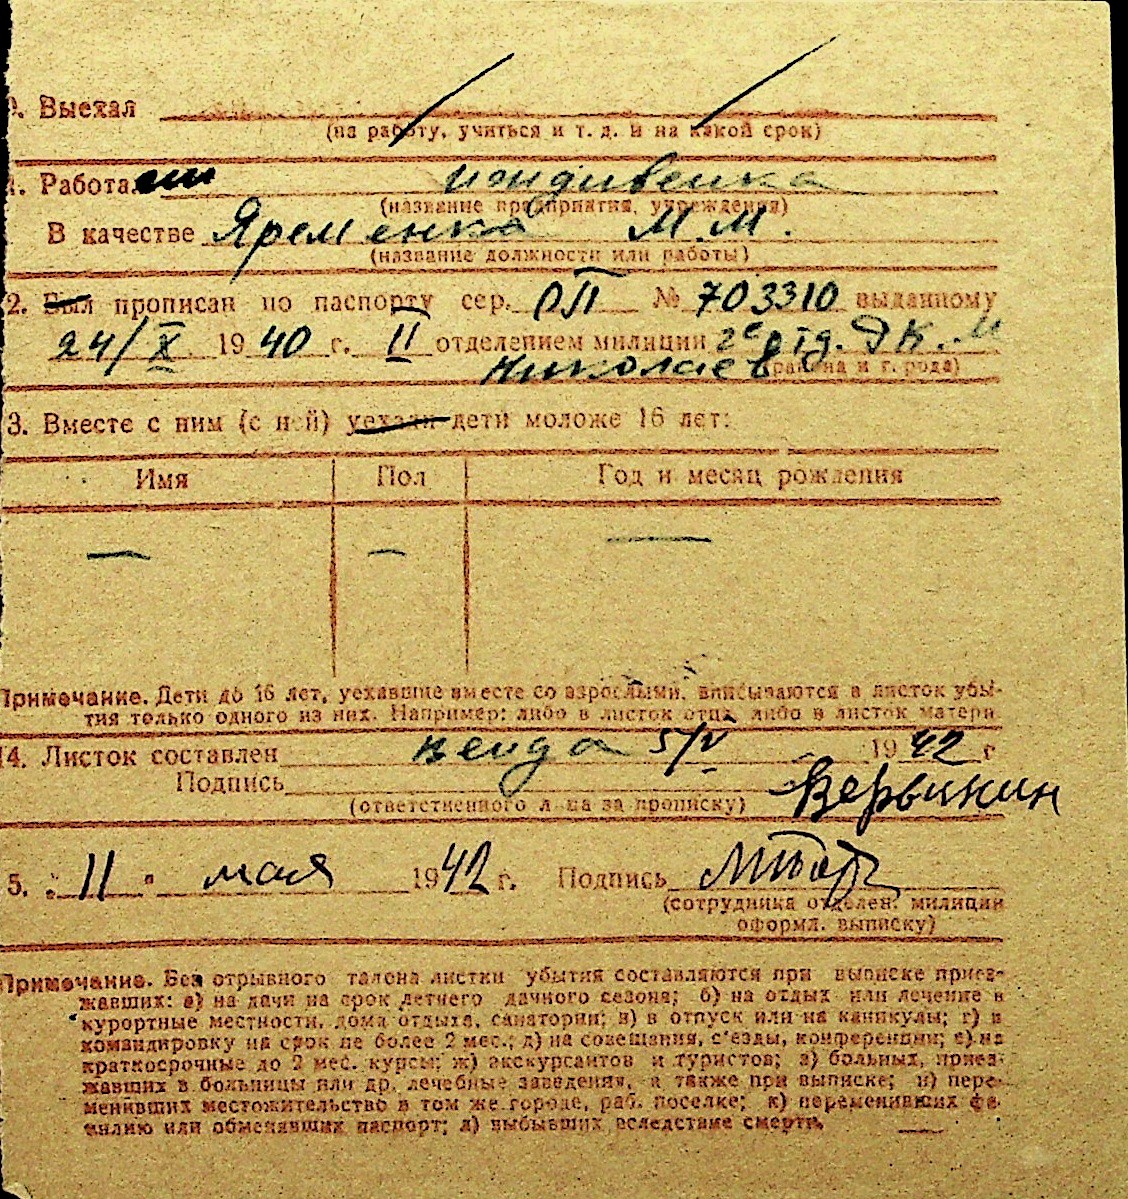 . Выехал
(на работу, учиться и т. д. и на какой срок)
. Работал иждивенка
(название предприятия, учреждения)
В качестве Яременка М.М.
(название должности или работы)
2. Был прописан по паспорту сер. ОП № 703310 выданному
24/X 1940 г. II отделением милиции 2е отд.
Николаев (района и города)
3. Вместе с ним (с ней) уехали дети моложе 16 лет:
Имя Пол Год и месяц рождения
— — —
Примечание. Дети до 16 лет, уехавшие вместе со взрослыми, вписываются в листок убы-
тия только одного из них. Например: либо в листок отца, либо в листок матери
14. Листок составлен 5/V 1942 г
Подпись
(ответственного лица за прописку)
5. "11" мая 1942 г. Подпись
(сотрудника отделен. милиции
оформл. выписку)
Примечание. Без отрывного талона листки убытия составляются при выписке приез-
жавших: а) на дачи на срок летнего дачного сезона; б) на отдых или лечение в
курортные местности, дома отдыха, санатории; в) в отпуск или на каникулы; г) в
командировку на срок не более 2 мес.; д) на совещания, с'езды, конференции; е) на
краткосрочные до 2 мес. курсы; ж) экскурсантов и туристов; з) больных, приез-
жавших в больницы или др. лечебные заведения, а также при выписке; и) пере-
менивших местожительство в том же городе, раб. поселке; к) переменивших фа-
милию или обменявших паспорт; л) выбывших вследствие смерти.